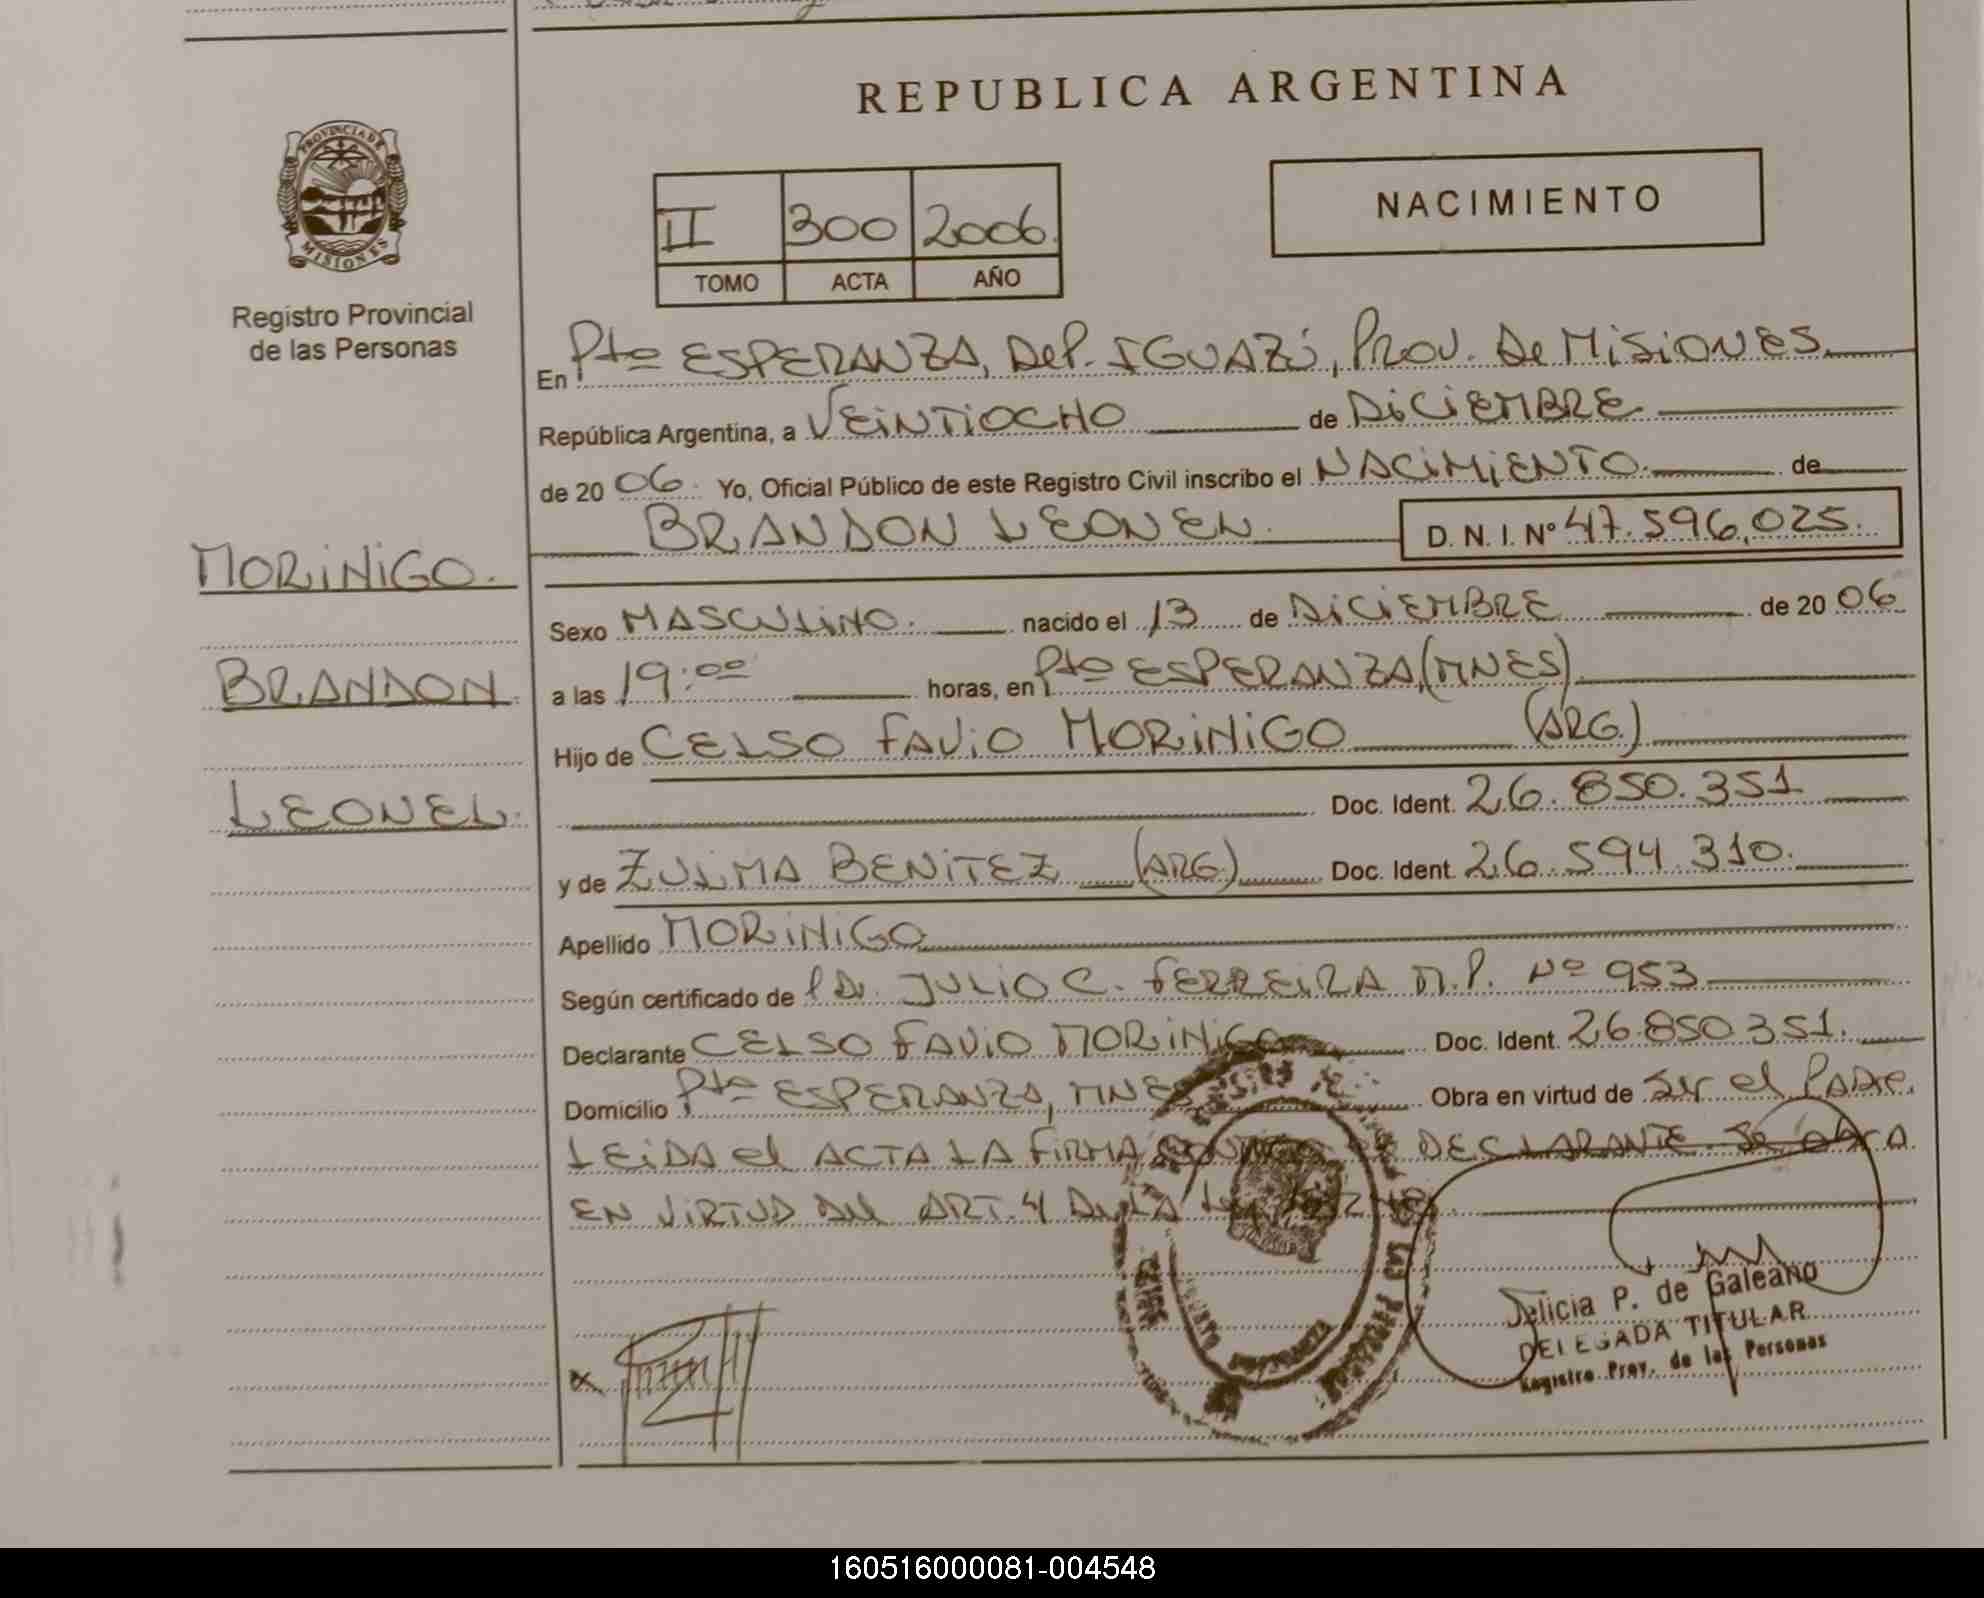 REPUBLICA ARGENTINA
PROVINCIA DE
MISIONES
Registro Provincial
de las Personas
II 300 2006.
TOMO ACTA AÑO
NACIMIENTO
En Pto ESPERANZA, Dep. IGUAZÚ, PROV. De MISIONES.
República Argentina, a VEINTIOCHO de DICIEMBRE
de 20 06. Yo, Oficial Público de este Registro Civil inscribo el NACIMIENTO. de
BRANDON LEONEL. D. N. I. Nº 47.596,025.
MORINIGO.
BRANDON.
LEONEL.
Sexo MASCULINO. nacido el 13 de DICIEMBRE de 20 06
a las 19:00 horas, en Pto ESPERANZA,(MNES)
Hijo de CELSO FAVIO MORINIGO (ARG.)
Doc. Ident. 26.850.351
y de ZULMA BENITEZ (ARG.) Doc. Ident. 26.594.310.
Apellido MORINIGO
Según certificado de Dr. JULIO C. FERREIRA M.P. Nº 953
Declarante CELSO FAVIO MORINIGO Doc. Ident. 26.850351.
Domicilio Pto ESPERANZA, MNES Obra en virtud de Ser el Padre.
LEIDA el ACTA LA FIRMA DECLARANTE. Se obra
EN VIRTUD del ART. 4 De LA
LAS
P. de Galeano
DELEGADA TITULAR
Registro Prov. de las Personas
160516000081-004548